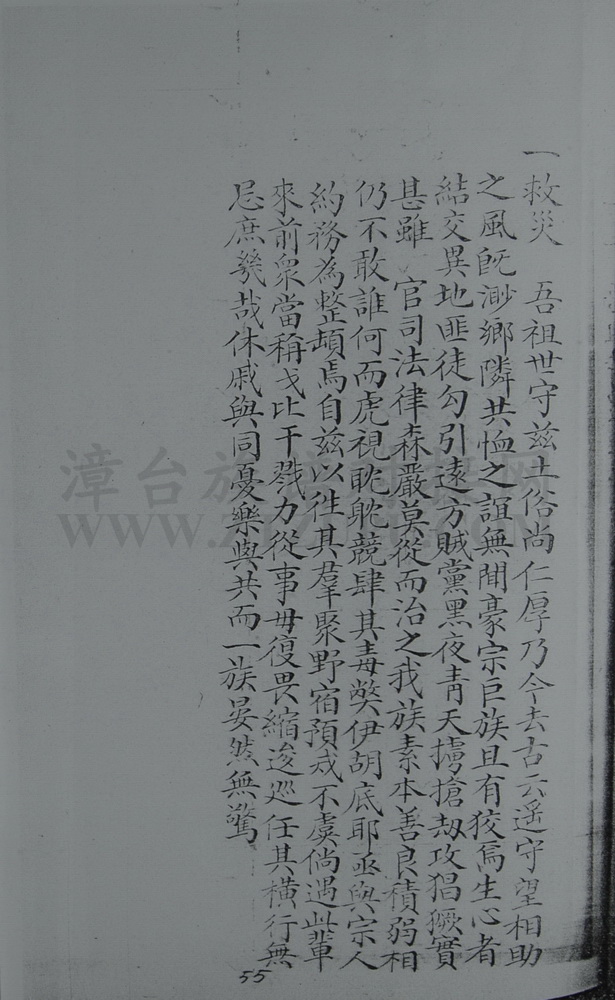 一救災　吾祖世守茲土俗尚仁厚乃今去古云遥守望相助
之風旣渺鄉隣共恤之誼無聞豪宗巨族且有狡焉生心者
結交異地匪徒勾引遠方賊黨黑夜青天擄搶刼攻猖獗實
甚雖　官司法律森嚴莫從而治之我族素本善良積弱相
仍不敢誰何而虎視眈眈競肆其毒弊伊胡底耶亟與宗人
約務為整頓焉自茲以徃其羣聚野宿預戒不虞倘遇此輩
來前衆當稱戈比干戮力從事毋復畏縮逡廵任其橫行無
忌庶幾哉休戚與同憂樂與共而一族晏然無驚
55
漳台族
www.